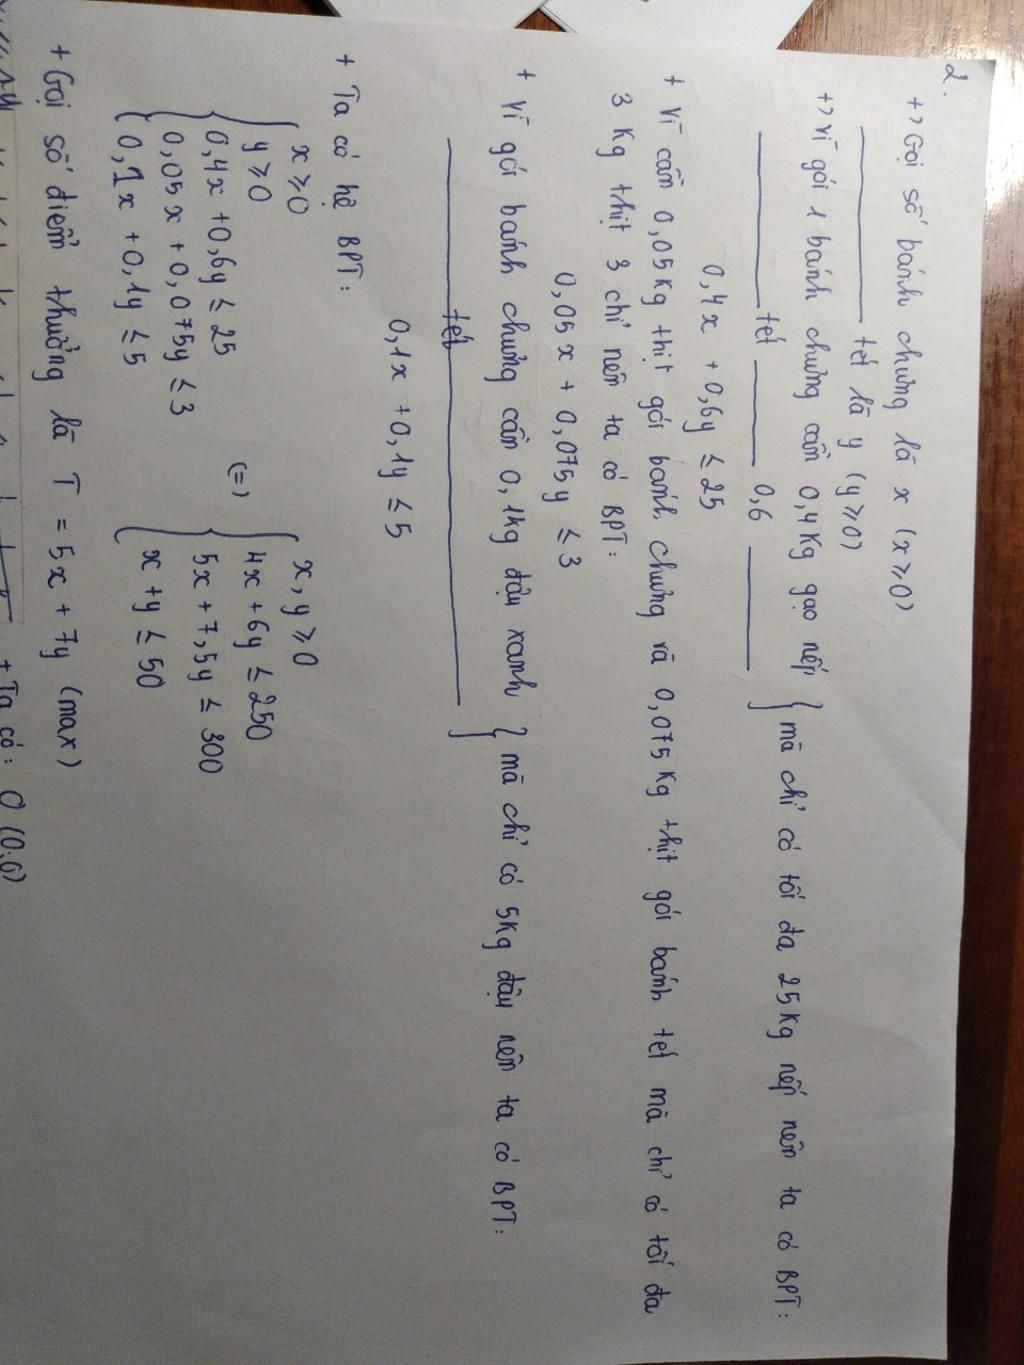 2.
+) Gọi số bánh chưng là x (x ≥ 0)
tét là y (y ≥ 0)
+) Vì gói 1 bánh chưng cần 0,4 Kg gạo nếp } mà chỉ có tối đa 25 Kg nếp nên ta có BPT:
tét 0,6
0,4x + 0,6y ≤ 25
+ Vì cần 0,05 Kg thịt gói bánh chưng và 0,075 Kg thịt gói bánh tét mà chỉ có tối đa
3 Kg thịt 3 chỉ nên ta có BPT:
0,05x + 0,075y ≤ 3
+ Vì gói bánh chưng cần 0,1kg đậu xanh } mà chỉ có 5Kg đậu nên ta có BPT:
tét
0,1x + 0,1y ≤ 5
+ Ta có hệ BPT:
{ x ≥ 0
y ≥ 0
0,4x + 0,6y ≤ 25
0,05x + 0,075y ≤ 3
0,1x + 0,1y ≤ 5
(=) { x, y ≥ 0
4x + 6y ≤ 250
5x + 7,5y ≤ 300
x + y ≤ 50
+ Gọi số điểm thưởng là T = 5x + 7y (max)
+ Ta có: O (0,0)